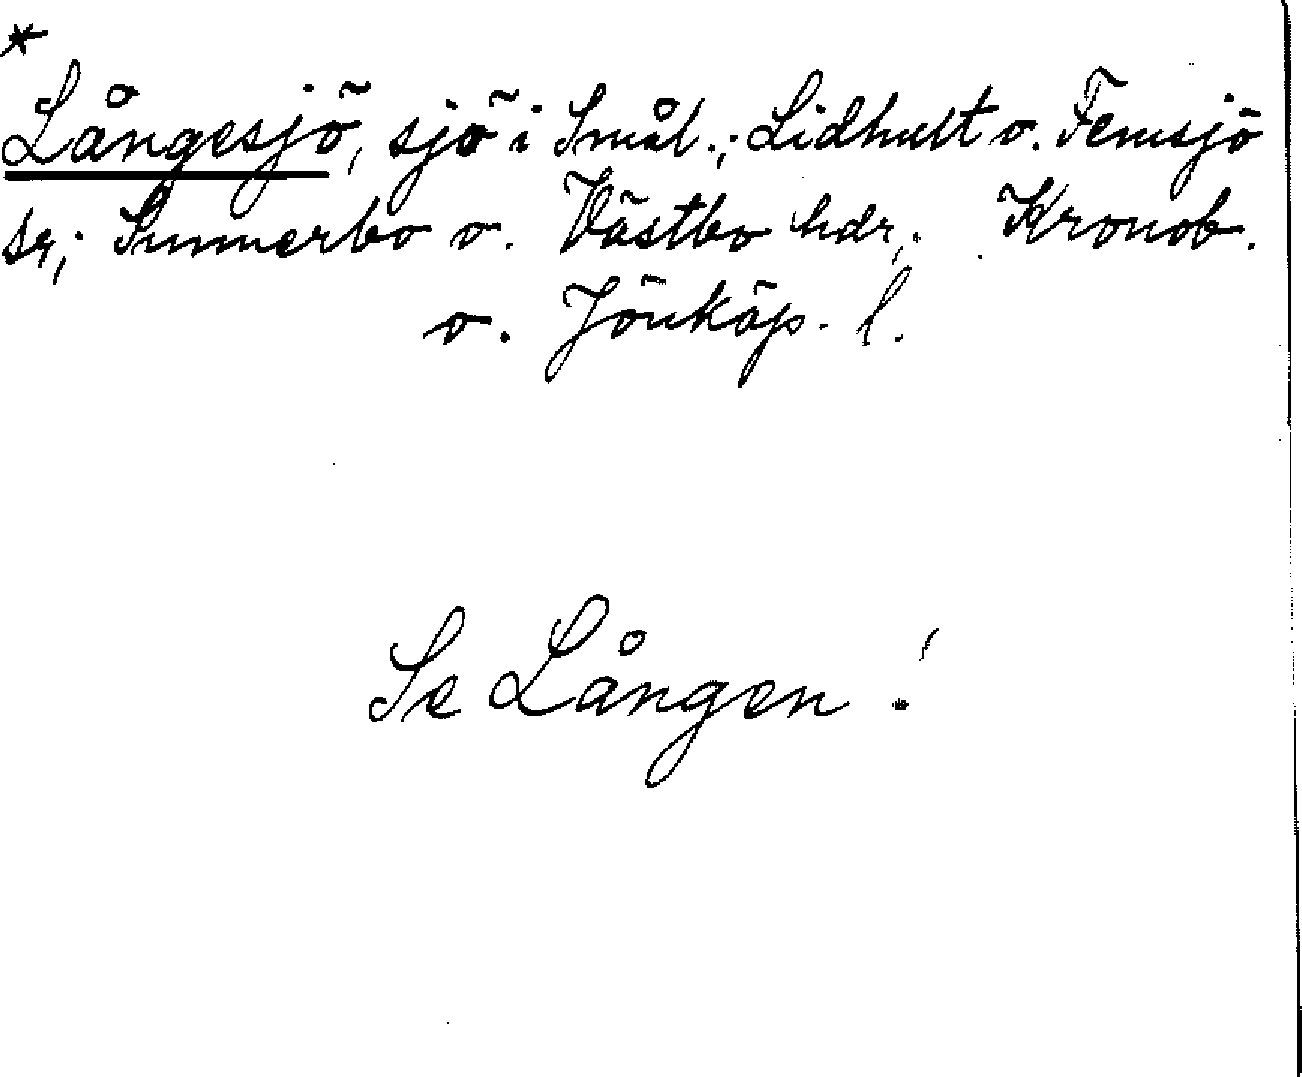 *
Långesjö, sjö i Smål.; Lidhult o. Femsjö
sr; Sunnerbo o. Västbo hdr; Kronob.
o. Jönköp. l.
Se Lången!